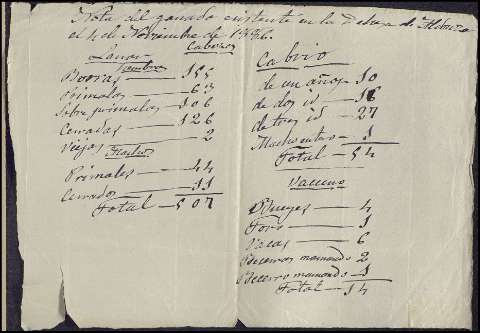 Nota del ganado existente en la Dehesa de
el 4 de Noviembre de 1886.
Cabezas
Lanar
Hembras
Borras — 155
Primalas — 63
Sobre primalas — 106
Cerradas — 126
Viejas — 2
Machos
Primales — 44
Cerrados — 11
Total — 507
Cabrio
de un año — 10
de dos id — 16
de tres id — 27
— 1
Total — 54
Vacuno
Bueyes — 4
Toro — 1
Vacas — 6
Becerros mamando 2
Becerro mamando — 1
Total — 14